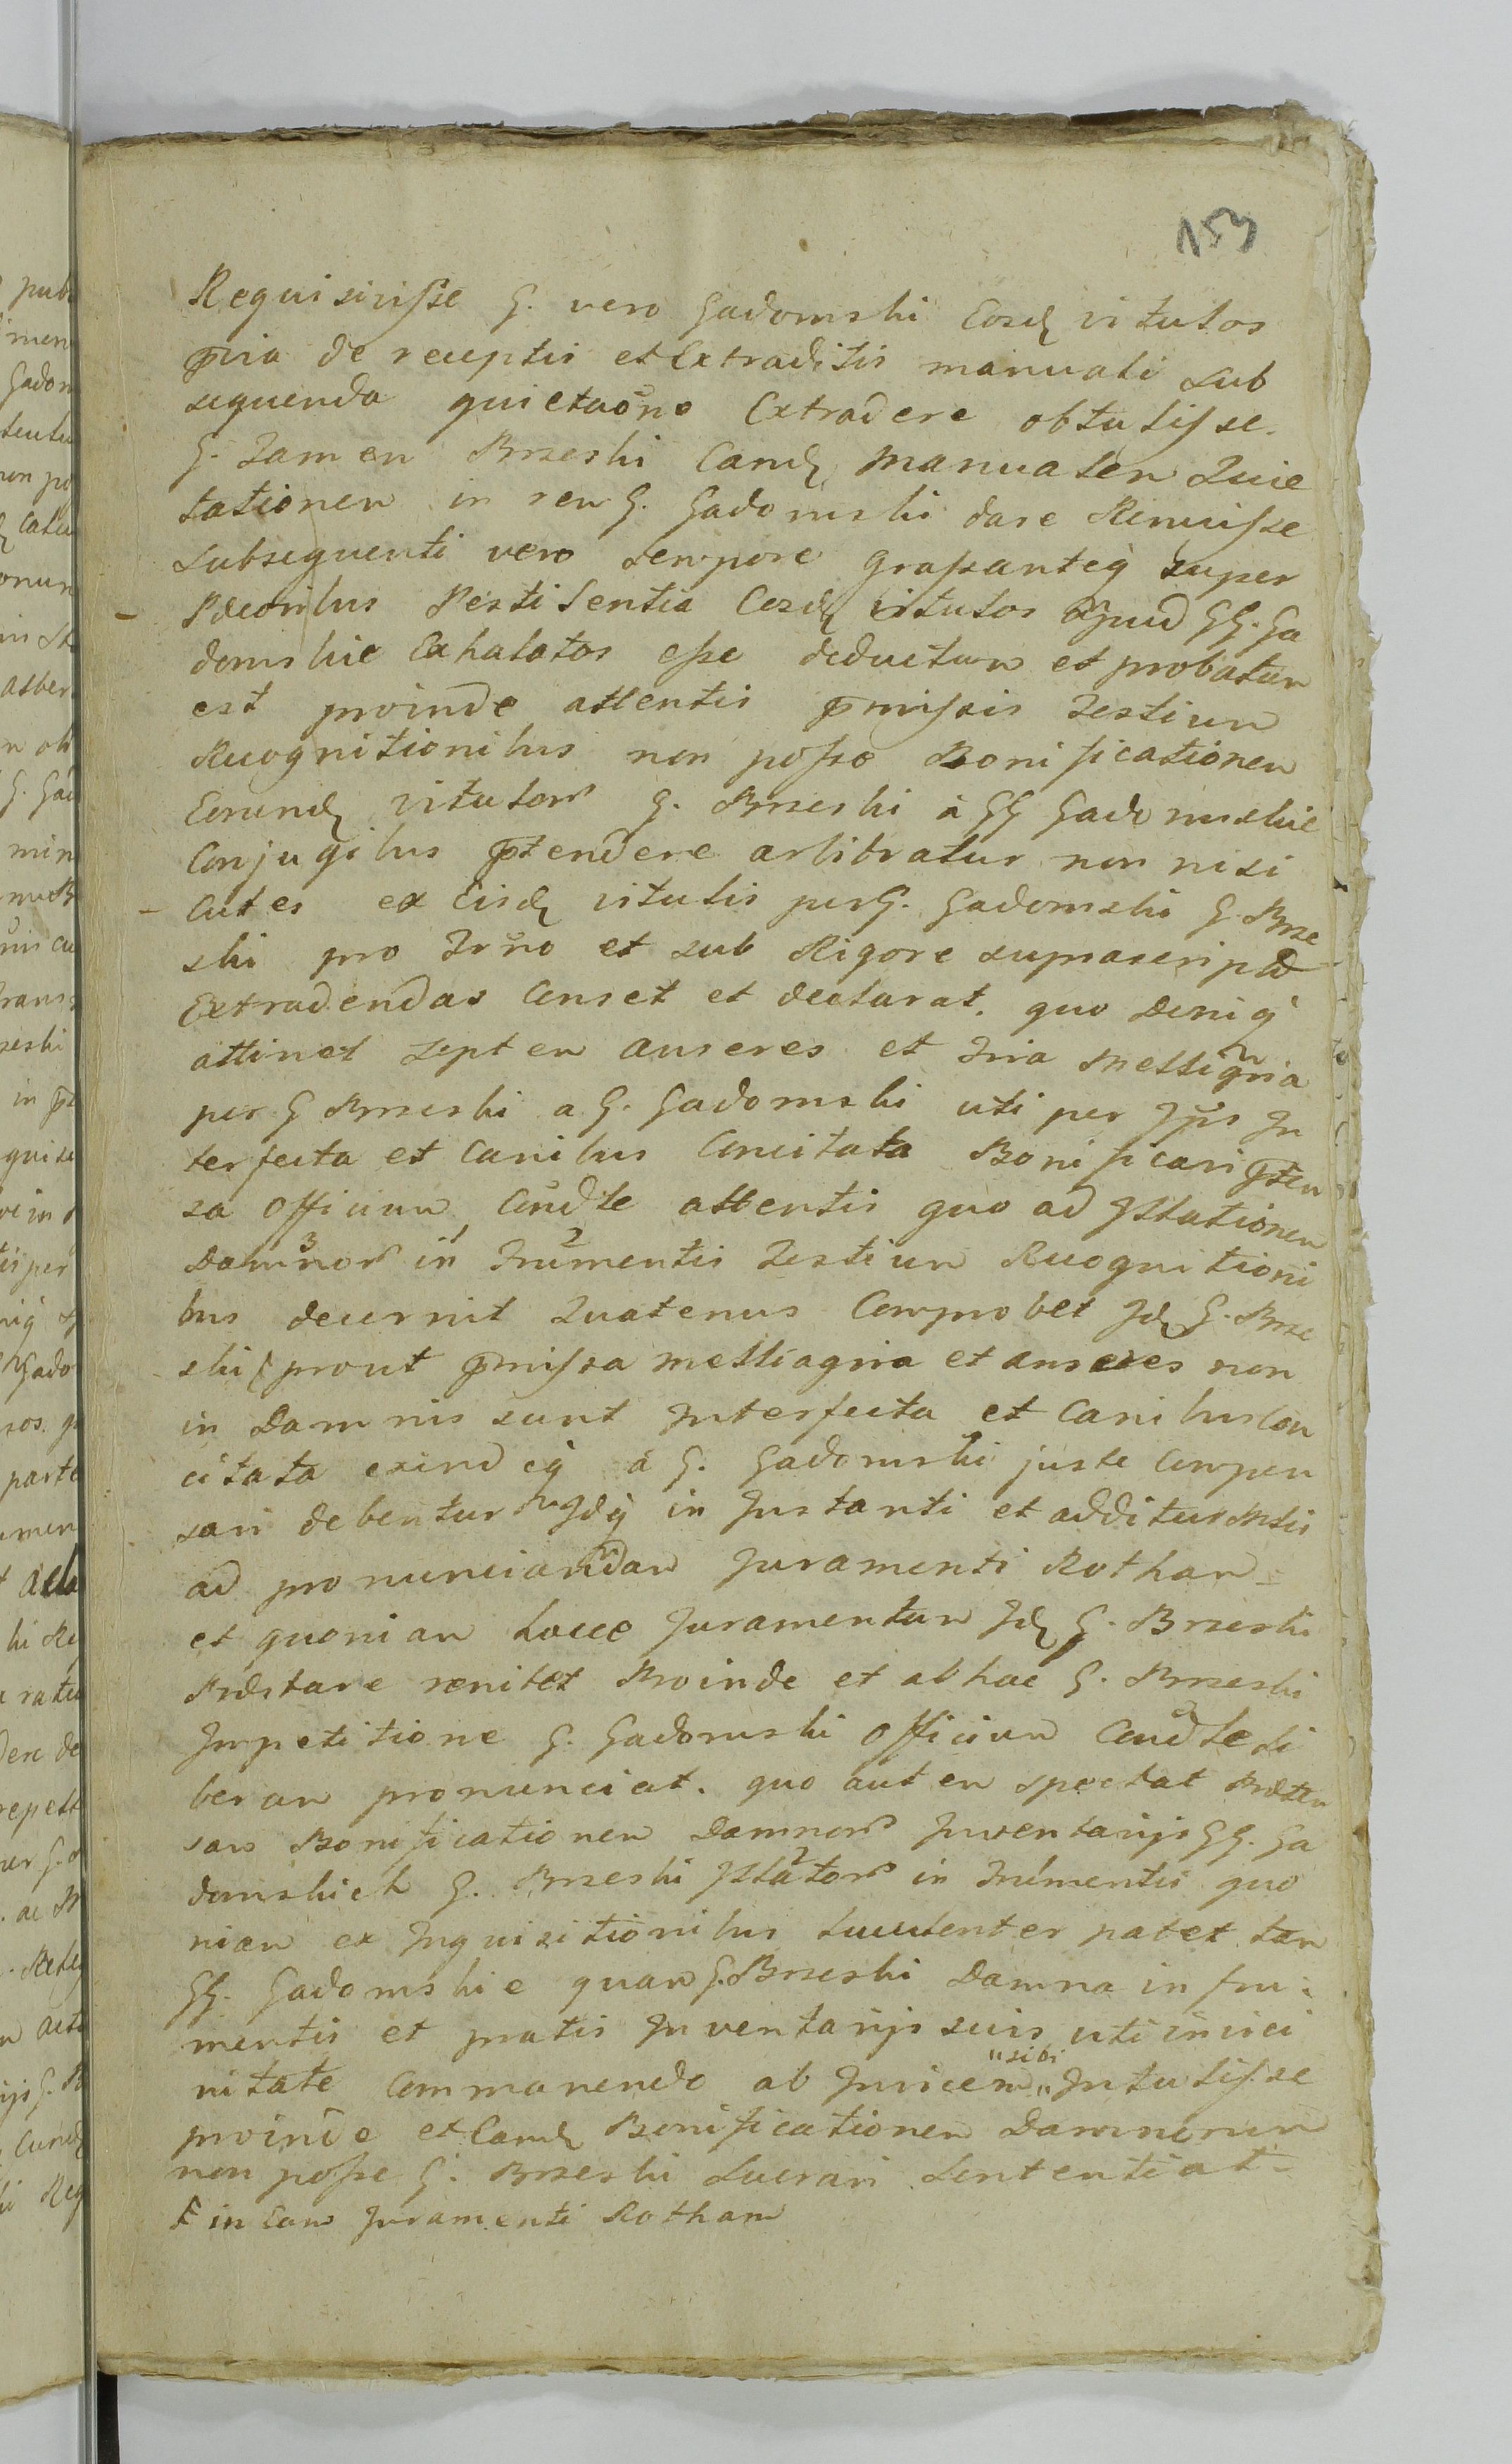 153
Requisivisse G. vero Gadomski Eosdę vitulos
p̄via de receptis et Extraditis manuali sub
sequenda quietaõne Extradere obtulisse.
G. Tamen Brzeski Eandę Manualem Quie
tationem in rem G. Gadomski dare Renuisse
subsequenti vero tempore grassanteq̀ super
Pecoribus Pestilentia Eosdę vitulos apud GG. Ga
domskie Exhalatos esse deductum et probatum
est proinde attentis p̄missis Testium
Recognitionibus non posse Bonificationem
Eorundę vitulorũ G. Brzeski à GG Gadomskie
Conjugibus p̄tendere arbitratur non nisi
Cutes ex Eisdę vitulis per G. Gadomski G. Brze
ski pro Tr̃no et sub Rigore suprascripto
Extradendas Censet et declarat. quo deniq̀
attinet septem anseres et tria Melliagria
per G Brzeski a G. Gadomski uti per Ip̃s In
terfecta et Canibus Concitata Bonificari p̄ten
sa Officium Cũdle attentis quo ad Illationem
3 1 2
Damnorũ in Frumentis Testium Recognitioni
bus decernit Quatenus Comprobet Idę G. Brze
ski F prout p̄missa melliagria et anseres non
in Damnis sunt Interfecta et Canibus Con
citata exindeq̀ à G. Gadomski juste Compen
sari debentur Idq̀ in Instanti et additur Mtis
ad pronunciandam Juramenti Rotham
et quoniam hocce Juramentum Idę G. Brzeski
Præstare renitet Proinde et ab hac G. Brzeski
Impetitione G. Gadomski Officium Cũdle li
berum pronunciat. quo autem spectat Præten
sam Bonificationem Damnorũ Inventarijs GG. Ga
domskich G. Brzeski Illatorũ in Frumentis quo
niam ex Inquisitionibus luculenter patet tam
GG. Gadomskie quam G. Brzeski Damna in fru:
mentis et pratis Inventarijs suis uti in vici
"sibi
nitate Commanendo ab Invicem " Intulisse
proinde et Eandę Bonificationem Damnorum
non posse G. Brzeski Lucrari Sententiat
F in Eam Juramenti Rotham